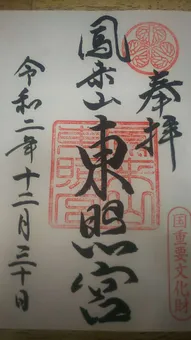 奉拝
国重要文化財
鳳来山
東照宮
令和二年十二月三十日